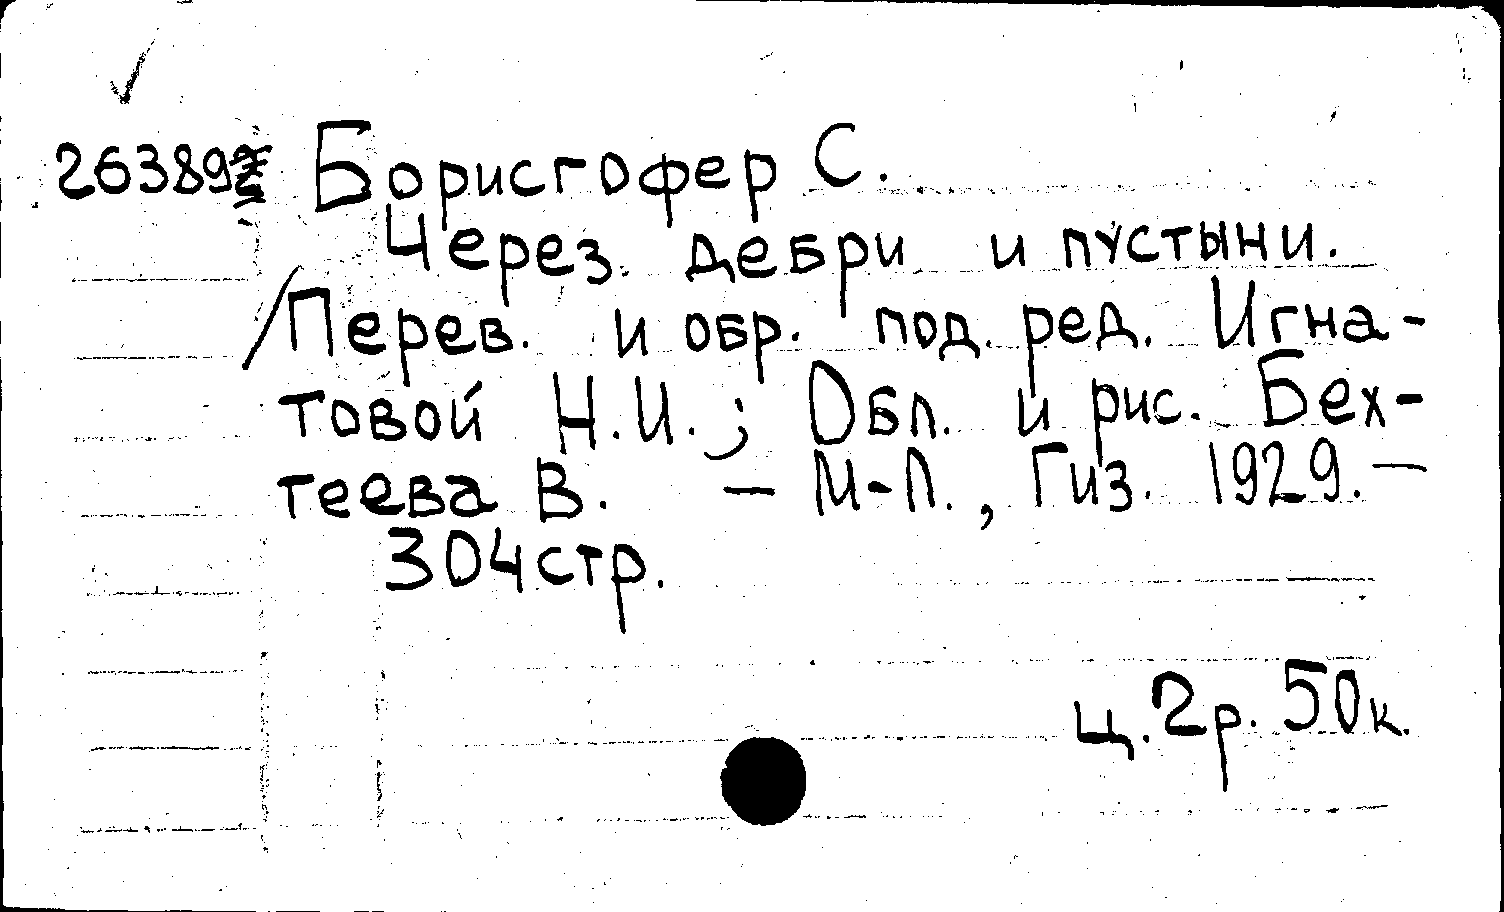 26389 Борисгофер С.
Через дебри и пустыни.
/Перев. и обр. под ред. Игна-
товой Н.И.; Обл. и рис. Бех-
теева В. - М-Л., Гиз. 1929. -
304стр.
ц. 2р. 50к.